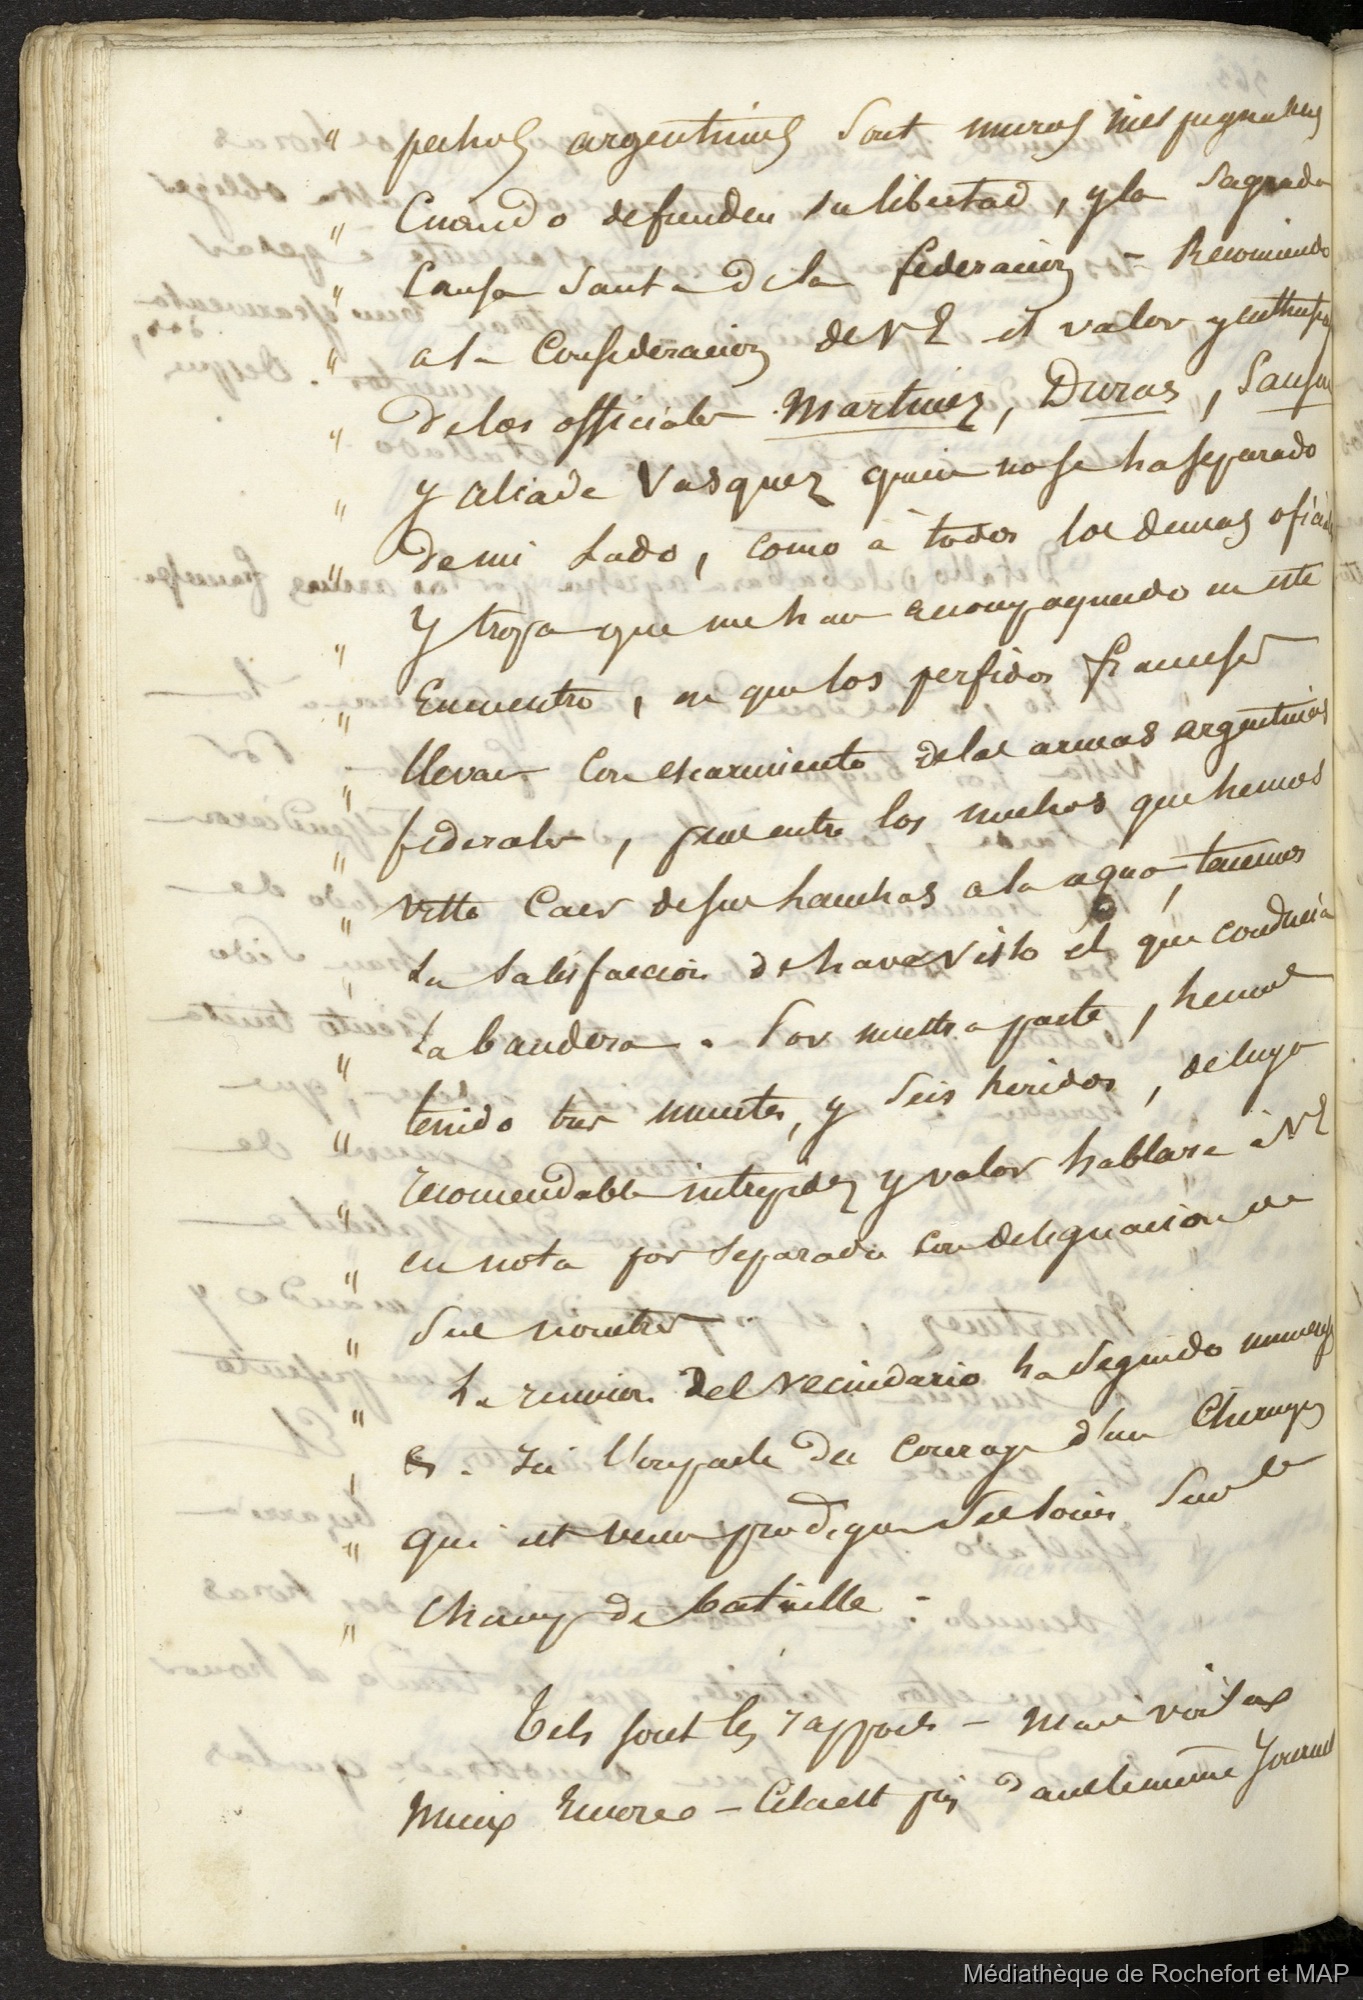 " pechos argentinos sont muros inespugnables
" Cuando defienden su libertad, y la Sagrada
" Causa Santa de la federacion - Recomiendo
" a la Consideracion de V E el valor y enthusias
" De los officiales Martinez, Duras, Sansu
" y alcade Vasquez quien no se ha separado
" de mi Lado, como à todos los demas oficia
" Y tropa que me han acompagnado en este
" Encuentro, en que los perfidos franceses
" llevan con escarmiento de las armas argentinas
" federales, pues entre los muchos que hemos
" visto Caer de sus lanchas a la agua, tenemos
" La Satisfaccion de haver visto el que conducia
" La bandera. Por nuestra parte, hemos
" tenido tres muertes, y Seis heridos, de cuya
" recomendable intrepidez y valor hablare à V E
" en nota por Separada con designacion de
" Sus nombres
" La reunion del vecindario ha Seguido numeros
" &. Ici l'on parle du courage d'un Chirurgien
" qui est venu prodiguer Ses Soins Sur le
" Champ de bataille :
Tels sont les rapports - Mais voici
Mieux Encore - Cela est pris dans le même Journal
Médiathèque de Rochefort et MAP